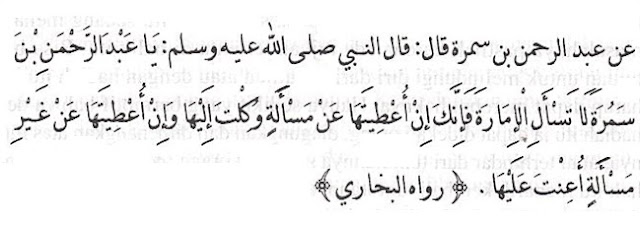 عن عبد الرحمن بن سمرة قال: قال النبي صلى الله عليه وسلم: يَا عَبْدَ الرَّحْمَنِ بْنَ
سَمُرَةَ لَا تَسْأَلِ الْإِمَارَةَ فَإِنَّكَ إِنْ أُعْطِيتَهَا عَنْ مَسْأَلَةٍ وُكِلْتَ إِلَيْهَا وَإِنْ أُعْطِيتَهَا عَنْ غَيْرِ
مَسْأَلَةٍ أُعِنْتَ عَلَيْهَا . ﴿ رواه البخاري ﴾